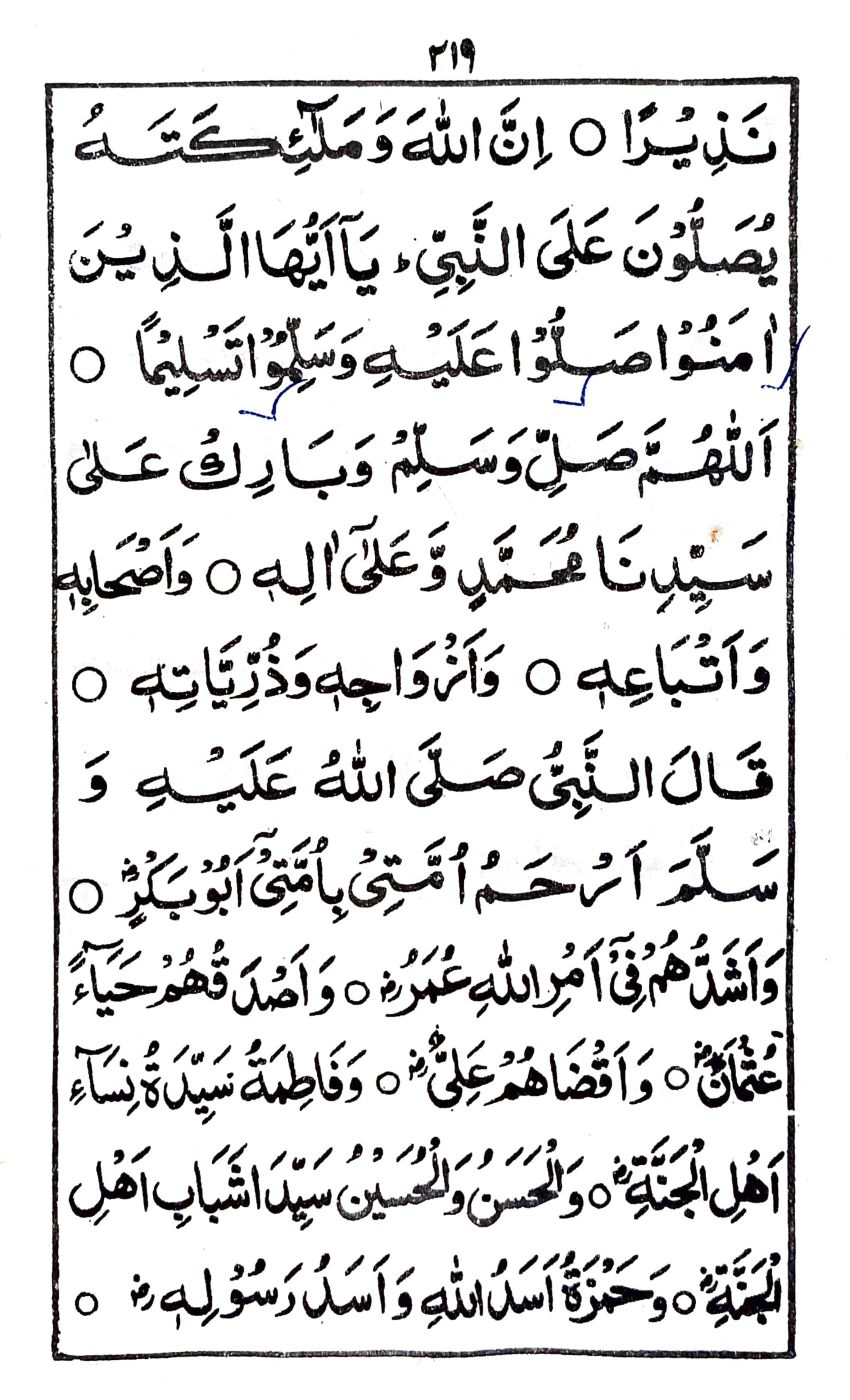 ۲۱۹
نَذِيْرًا ○ اِنَّ اللّٰهَ وَمَلٰٓئِكَتَهُ
يُصَلُّوْنَ عَلَى النَّبِيِّ ؕ يَآ اَيُّهَا الَّذِيْنَ
اٰمَنُوْا صَلُّوْا عَلَيْهِ وَسَلِّمُوْا تَسْلِيْمًا ○
اَللّٰهُمَّ صَلِّ وَسَلِّمْ وَبَارِكْ عَلٰى
سَيِّدِنَا مُحَمَّدٍ وَّعَلٰٓى اٰلِهٖ ○ وَاَصْحَابِهٖ
وَاَتْبَاعِهٖ ○ وَاَزْوَاجِهٖ وَذُرِّيَّاتِهٖ ○
قَالَ النَّبِيُّ صَلَّى اللّٰهُ عَلَيْهِ وَ
سَلَّمَ اَرْحَمُ اُمَّتِيْ بِاُمَّتِيْٓ اَبُوْ بَكْرٍؓ ○
وَاَشَدُّهُمْ فِيْٓ اَمْرِ اللّٰهِ عُمَرُؓ ○ وَاَصْدَقُهُمْ حَيَآءً
عُثْمَانُؓ ○ وَاَقْضَاهُمْ عَلِيٌّؓ ○ وَفَاطِمَةُ سَيِّدَةُ نِسَآءِ
اَهْلِ الْجَنَّةِؓ ○ وَالْحَسَنُ وَالْحُسَيْنُ سَيِّدَا شَبَابِ اَهْلِ
الْجَنَّةِؓ ○ وَحَمْزَةُ اَسَدُ اللّٰهِ وَاَسَدُ رَسُوْلِهٖؓ ○